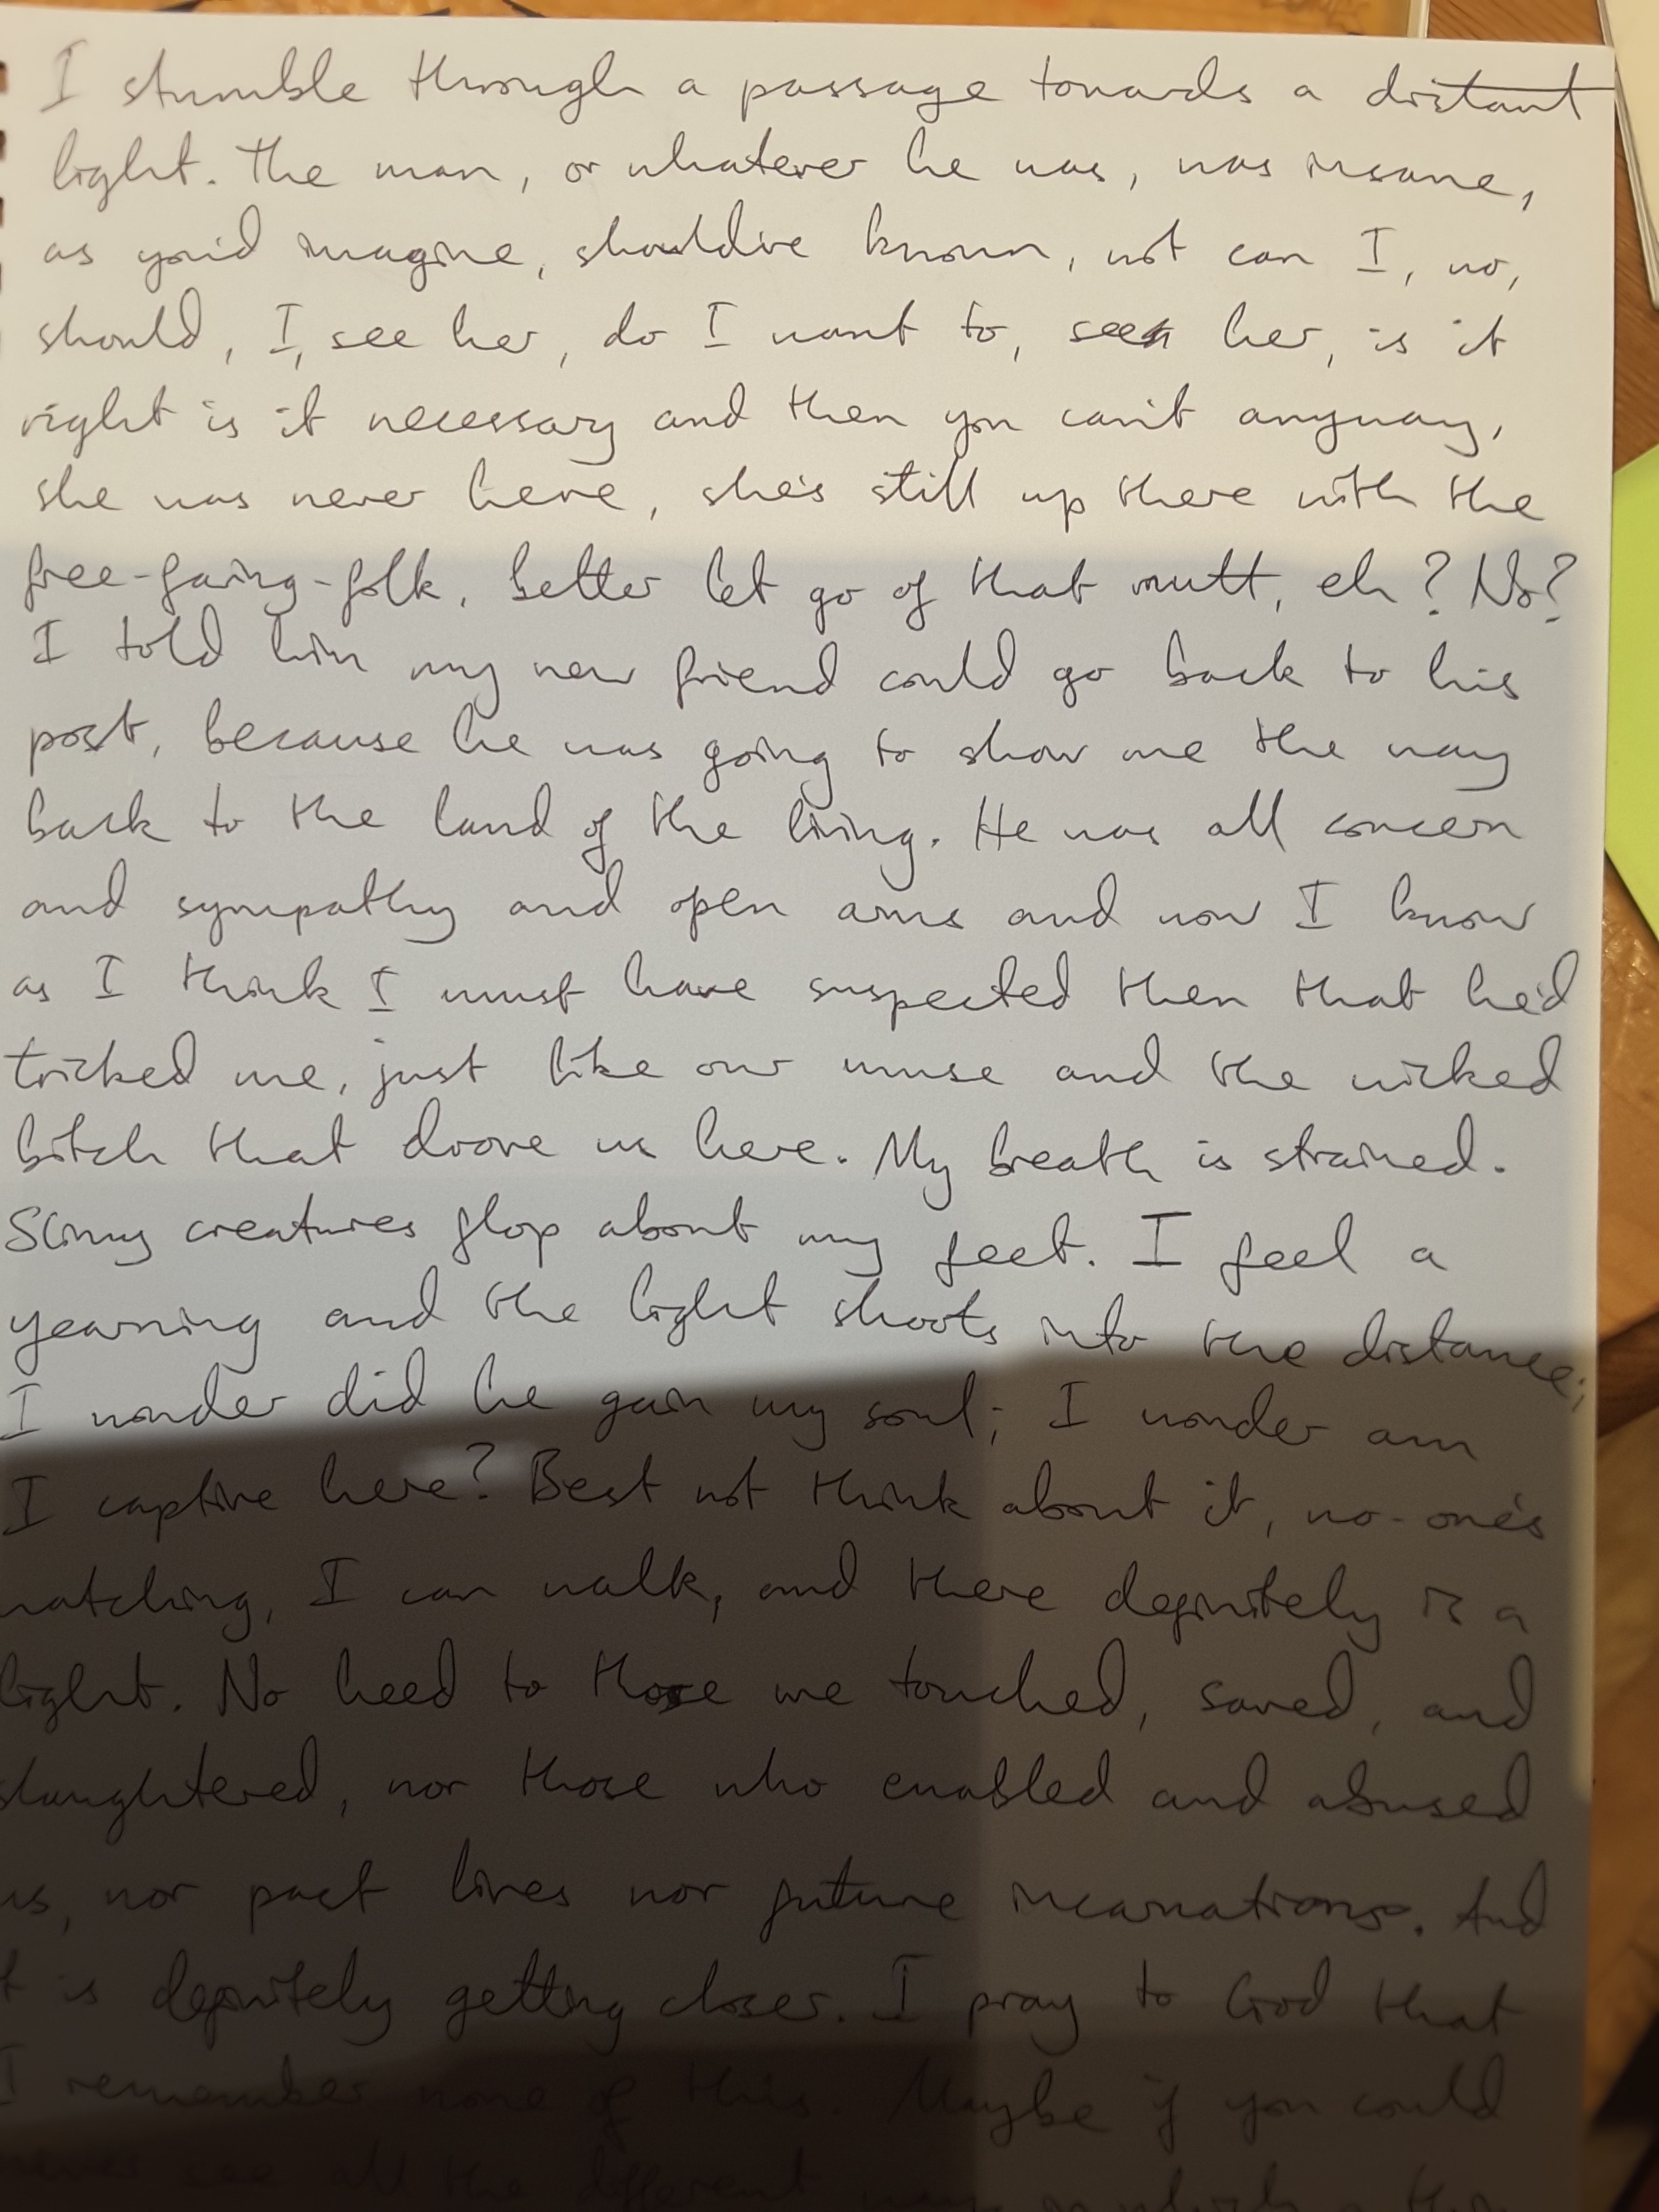 I stumble through a passage towards a distant
light. The man, or whatever he was, was insane,
as you'd imagine, should've known, not can I, no,
should, I, see her, do I want to, see her, is it
right is it necessary and then you can't anyway,
she was never here, she's still up there with the
free-faring-folk, better let go of that mutt, eh? No?
I told him my new friend could go back to his
post, because he was going to show me the way
back to the land of the living. He was all concern
and sympathy and open arms and now I know
as I think I must have suspected then that he'd
tricked me, just like our muse and the wicked
bitch that drove us here. My breath is strained.
Slimy creatures flop about my feet. I feel a
yearning and the light shoots into the distance;
I wonder did he gain my soul; I wonder am
I captive here? Best not think about it, no-one's
watching, I can walk, and there definitely is a
light. No heed to those we touched, saved, and
slaughtered, nor those who enabled and abused
us, nor past lives nor future incarnations. And
it is definitely getting closer. I pray to God that
I remember none of this. Maybe if you could
never see all the different ways in which a